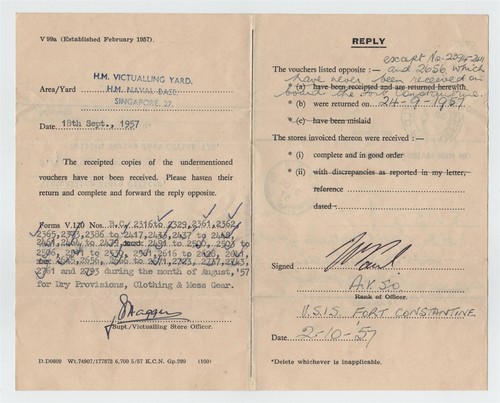 V 99a (Established February 1957).
H.M. VICTUALLING YARD,
Area/Yard H.M. NAVAL BASE,
SINGAPORE, 27.
Date 18th Sept., 1957
The receipted copies of the undermentioned
vouchers have not been received. Please hasten their
return and complete and forward the reply opposite.
Forms V.120 Nos. R.O. 2316 to 2329, 2361, 2362,
2365, 2373, 2386 to 2417, 2433, 2437 to
2461, 2464 to 2479 2491 to 2500, 2503 to
2506, to
2761 and 2793 during the month of August, '57
for Dry Provisions, Clothing & Mess Gear.
Supt./Victualling Store Officer.
D.D0809 Wt.74907/177872 6,700 5/57 K.C.N. Gp.299 (100)
REPLY
except No.
The vouchers listed opposite :— and 2656 which
have never been received on
(a) have been received and are returned herewith
board the
* (b) were returned on 24-9-1957
* (c) have been mislaid
The stores invoiced thereon were received :—
* (i) complete and in good order
* (ii) with discrepancies as reported in my letter,
reference
dated
Signed
A.V.S.O
Rank of Officer.
U.S.I.S. FORT CONSTANTINE
Date 2-10-57
*Delete whichever is inapplicable.